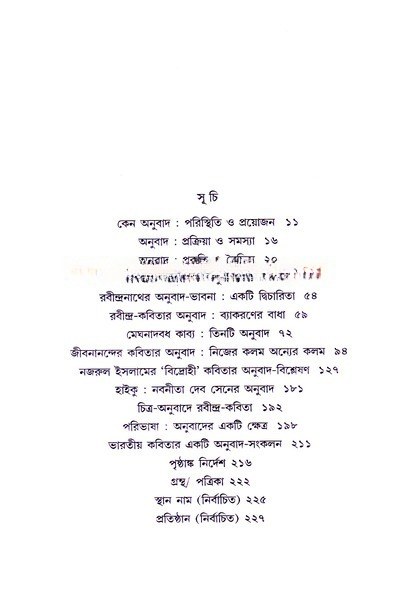 সূ চি
কেন অনুবাদ : পরিস্থিতি ও প্রয়োজন ১১
অনুবাদ : প্রক্রিয়া ও সমস্যা ১৬
অনুবাদ : ২০
রবীন্দ্রনাথের অনুবাদ-ভাবনা : একটি দ্বিচারিতা ৫৪
রবীন্দ্র-কবিতার অনুবাদ : ব্যাকরণের বাধা ৫৯
মেঘনাদবধ কাব্য : তিনটি অনুবাদ ৭২
জীবনানন্দের কবিতার অনুবাদ : নিজের কলম অন্যের কলম ৯৪
নজরুল ইসলামের ‘বিদ্রোহী’ কবিতার অনুবাদ-বিশ্লেষণ ১২৭
হাইকু : নবনীতা দেব সেনের অনুবাদ ১৮১
চিত্র-অনুবাদে রবীন্দ্র-কবিতা ১৯২
পরিভাষা : অনুবাদের একটি ক্ষেত্র ১৯৮
ভারতীয় কবিতার একটি অনুবাদ-সংকলন ২১১
পৃষ্ঠাঙ্ক নির্দেশ ২১৬
গ্রন্থ/ পত্রিকা ২২২
স্থান নাম (নির্বাচিত) ২২৫
প্রতিষ্ঠান (নির্বাচিত) ২২৭